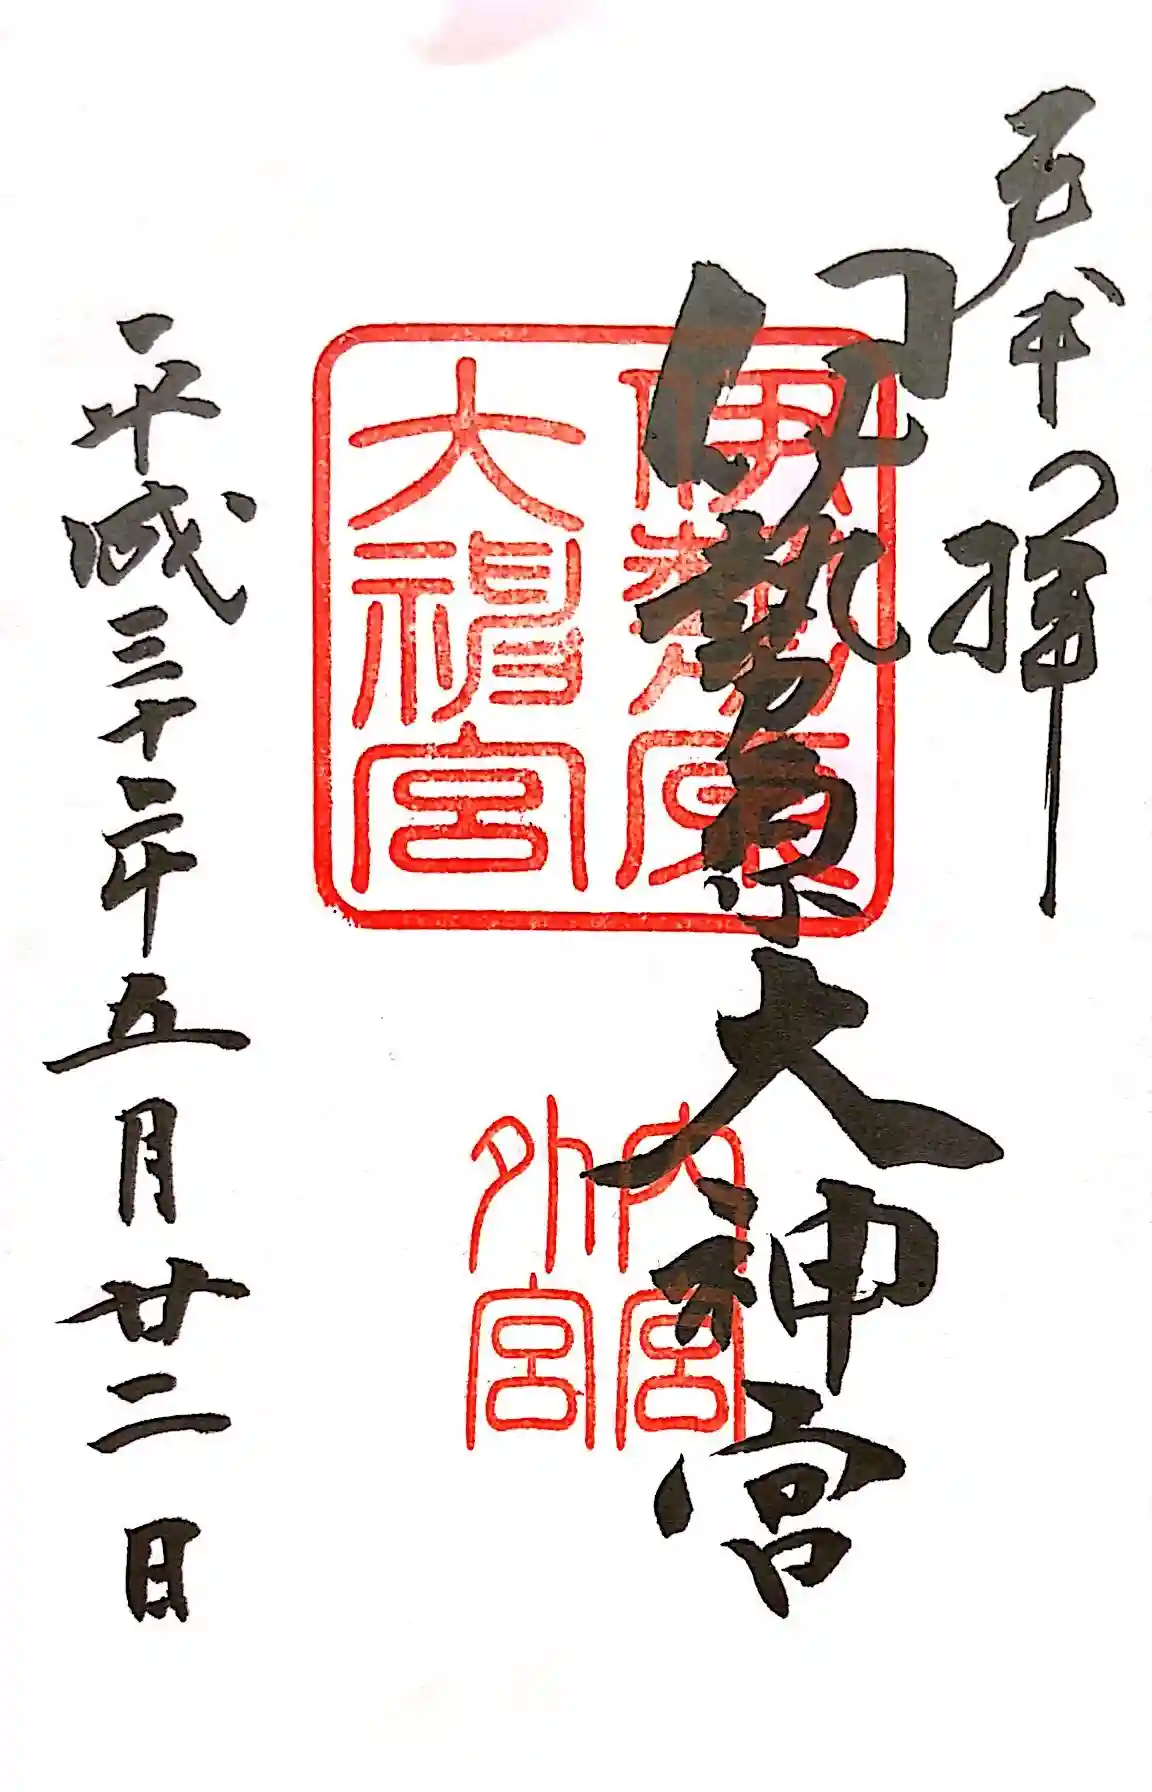 奉拝
伊勢原大神宮
伊勢原
大神宮
内宮
外宮
平成三十二年五月廿二日